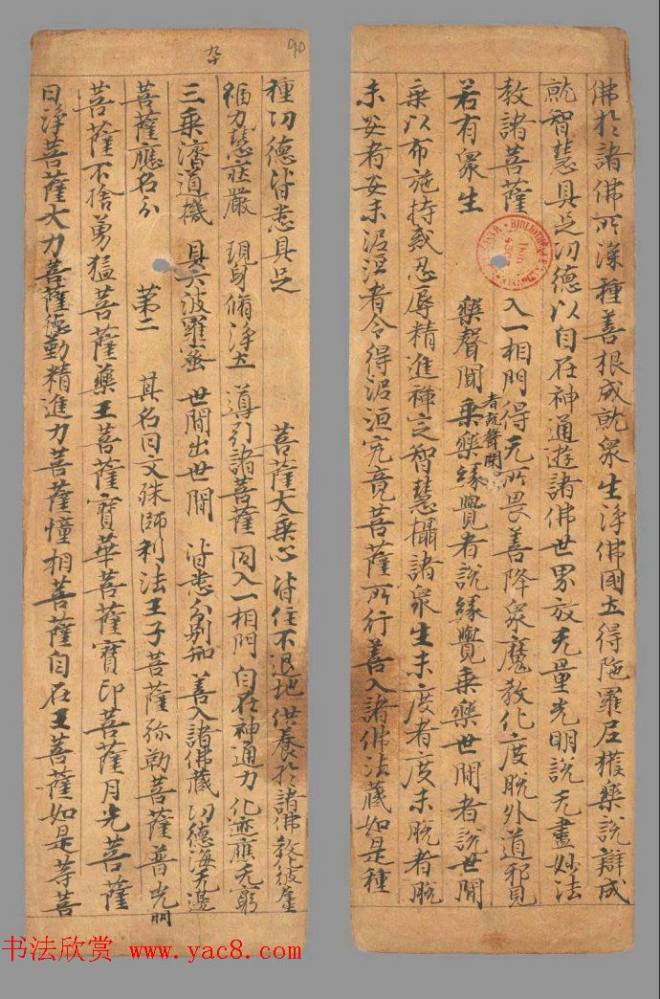 佛於諸佛所深種善根成就衆生浄佛國土得陁羅尼獲樂說辯成
就智慧具足功德以自在神通遊諸佛世界放无量光明說无盡妙法
教諸菩薩 入一相門得无所畏善降衆魔教化度脱外道邪見
若有衆生 樂聲聞乘樂緣覺者說緣覺乘樂世間者說世間
者說聲聞
乘以布施持戒忍辱精進禅定智慧攝諸衆生未度者度未脱者脱
未安者安未涅洹者令得涅洹究竟菩薩所行善入諸佛法藏如是種
90
種功德皆悉具足 菩薩大乘心 皆住不退地 供養於諸佛 教彼
福力慧莊嚴 現身脩浄土 導引諸菩薩 同入一相門 自在神通力 化應无窮
三乘濟道機 具六波羅蜜 世間出世間 皆悉分別知 善入諸佛藏 功德海无邊
菩薩應名分 第二 其名曰文殊師利法王子菩薩弥勒菩薩普光明
菩薩不捨勇猛菩薩藥王菩薩寶華菩薩寶印菩薩月光菩薩
日浄菩薩大力菩薩勤精進力菩薩憧相菩薩自在王菩薩如是等菩
书法欣赏 www.yac8.com